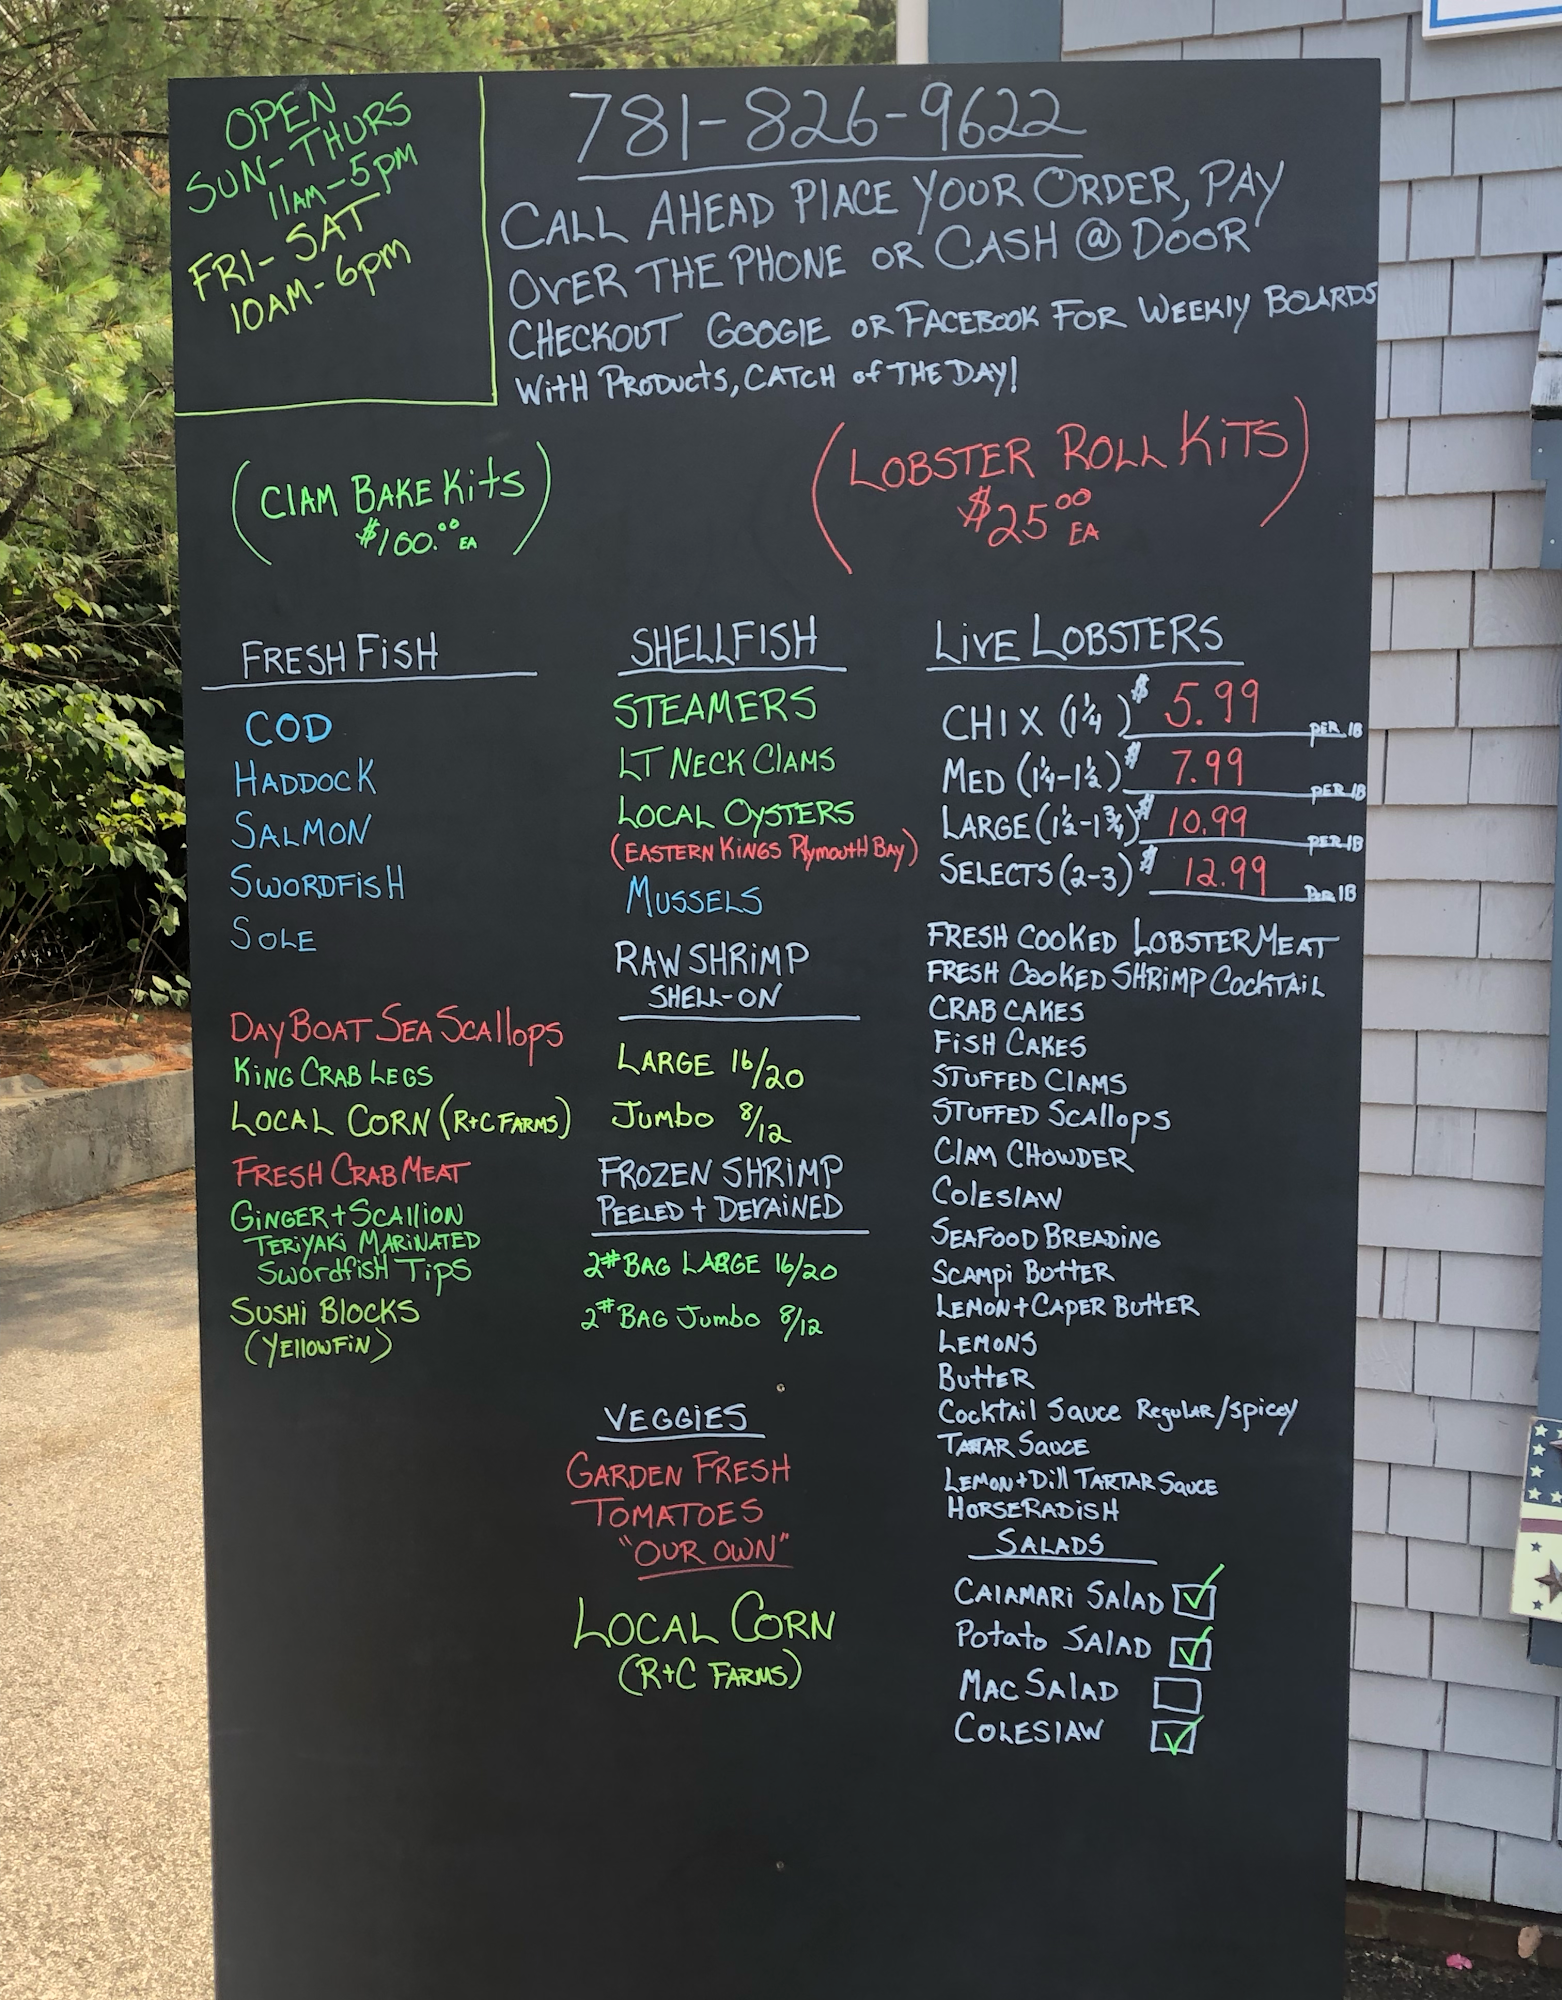 OPEN
SUN-THURS
11AM-5PM
FRI-SAT
10AM-6PM
781-826-9622
CALL AHEAD PLACE YOUR ORDER, PAY
OVER THE PHONE OR CASH @ DOOR
CHECKOUT GOOGLE OR FACEBOOK FOR WEEKLY BOARDS
WITH PRODUCTS, CATCH of THE DAY!
(CLAM BAKE KITS)
$100.00 EA
(LOBSTER ROLL KITS)
$25 00 EA
FRESH FISH
COD
HADDOCK
SALMON
SWORDFISH
SOLE
DAY BOAT SEA SCALLOPS
KING CRAB LEGS
LOCAL CORN (R+C FARMS)
FRESH CRAB MEAT
GINGER + SCALLION
TERIYAKI MARINATED
SWORDFISH TIPS
SUSHI BLOCKS
(YELLOWFIN)
SHELLFISH
STEAMERS
LT NECK CLAMS
LOCAL OYSTERS
(EASTERN KINGS PLYMOUTH BAY)
MUSSELS
RAW SHRIMP
SHELL-ON
LARGE 16/20
JUMBO 8/12
FROZEN SHRIMP
PEELED + DEVAINED
2# BAG LARGE 16/20
2# BAG JUMBO 8/12
VEGGIES
GARDEN FRESH
TOMATOES
"OUR OWN"
LOCAL CORN
(R+C FARMS)
LIVE LOBSTERS
CHIX (1 1/4) $ 5.99 PER LB
MED (1 1/4-1 1/2) $ 7.99 PER LB
LARGE (1 1/2-1 3/4) $ 10.99 PER LB
SELECTS (2-3) $ 12.99 PER LB
FRESH COOKED LOBSTER MEAT
FRESH COOKED SHRIMP COCKTAIL
CRAB CAKES
FISH CAKES
STUFFED CLAMS
STUFFED SCALLOPS
CLAM CHOWDER
COLESLAW
SEAFOOD BREADING
SCAMPI BUTTER
LEMON + CAPER BUTTER
LEMONS
BUTTER
COCKTAIL SAUCE REGULAR/SPICEY
TATAR SAUCE
LEMON + DILL TARTAR SAUCE
HORSERADISH
SALADS
CALAMARI SALAD ☑
POTATO SALAD ☑
MAC SALAD ☐
COLESLAW ☑